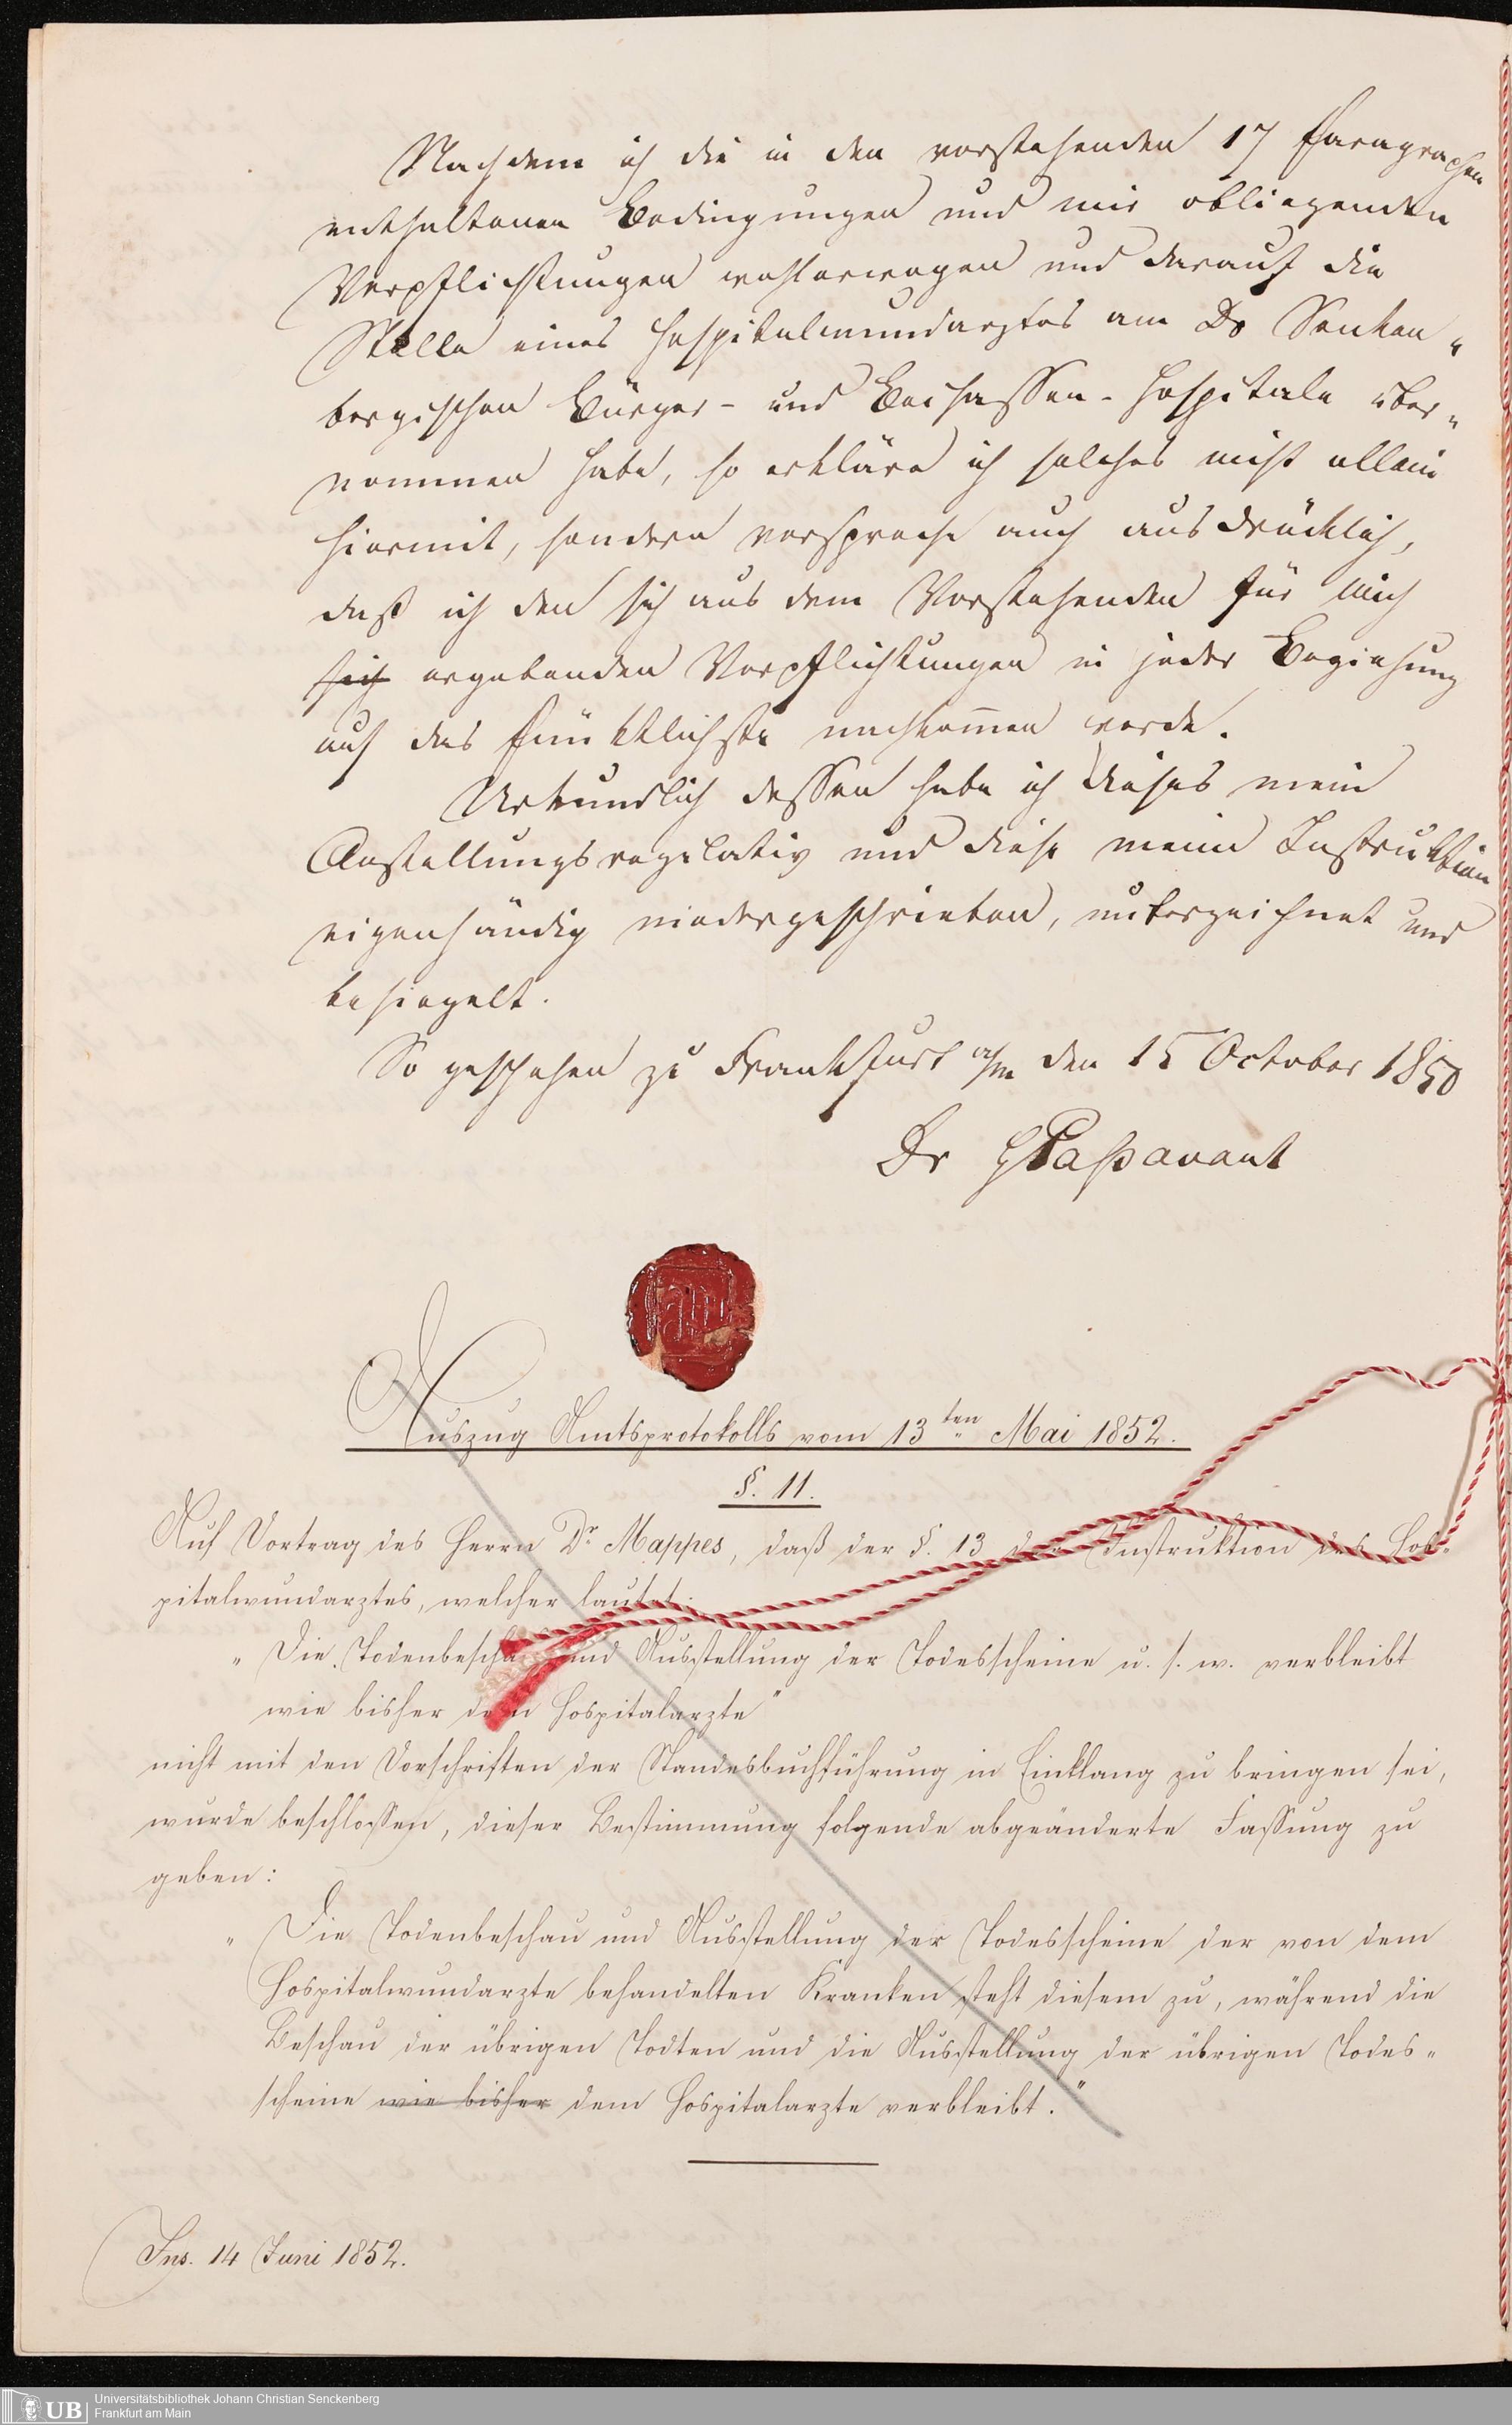 Nachdem ich die in den vorstehenden 17 Paragraphen
enthaltenen Bedingungen und mir obliegenden
Verpflichtungen wohlerwogen und darauf die
Stelle eines Hospitalwundarztes am Dr Senken„
bergischen Bürger- und Beisassen-Hospitale über„
nommen habe, so erkläre ich solches nicht allein
hiermit, sondern verspreche auch ausdrücklich,
daß ich den sich aus dem Vorstehenden für mich
sich ergebenden Verpflichtungen in jeder Beziehung
auf das Pünktlichste nachkom̄en werde.
Urkundlich dessen habe ich dieses mein
Anstellungsregulativ und diese meine Instruktion
eigenhändig niedergeschrieben, unterzeichnet und
besiegelt.
So geschehen zu Frankfurt a/m den 15 October 1850
Dr GPassavant
Auszug Amtsprotokolls vom 13ten Mai 1852.
§. 11.
Auf Vortrag des Herrn Dr Mappes, daß der §. 13 der Instruktion des Hos„
pitalwundarztes, welcher lautet:
„Die Todenbeschau und Ausstellung der Todesscheine u. s. w. verbleibt
wie bisher dem Hospitalarzte"
nicht mit den Vorschriften der Standesbuchführung in Einklang zu bringen sei,
wurde beschlossen, dieser Bestimmung folgende abgeänderte Fassung zu
geben:
„Die Todenbeschau und Ausstellung der Todesscheine der von dem
Hospitalwundarzte behandelten Kranken steht diesem zu, während die
Beschau der übrigen Todten und die Ausstellung der übrigen Todes„
scheine wie bisher dem Hospitalarzte verbleibt."
Ins. 14 Juni 1852.
UB
Universitätsbibliothek Johann Christian Senckenberg
Frankfurt am Main